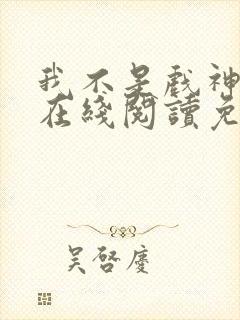 我不是戲神
在綫閱讀免
吴啓慶